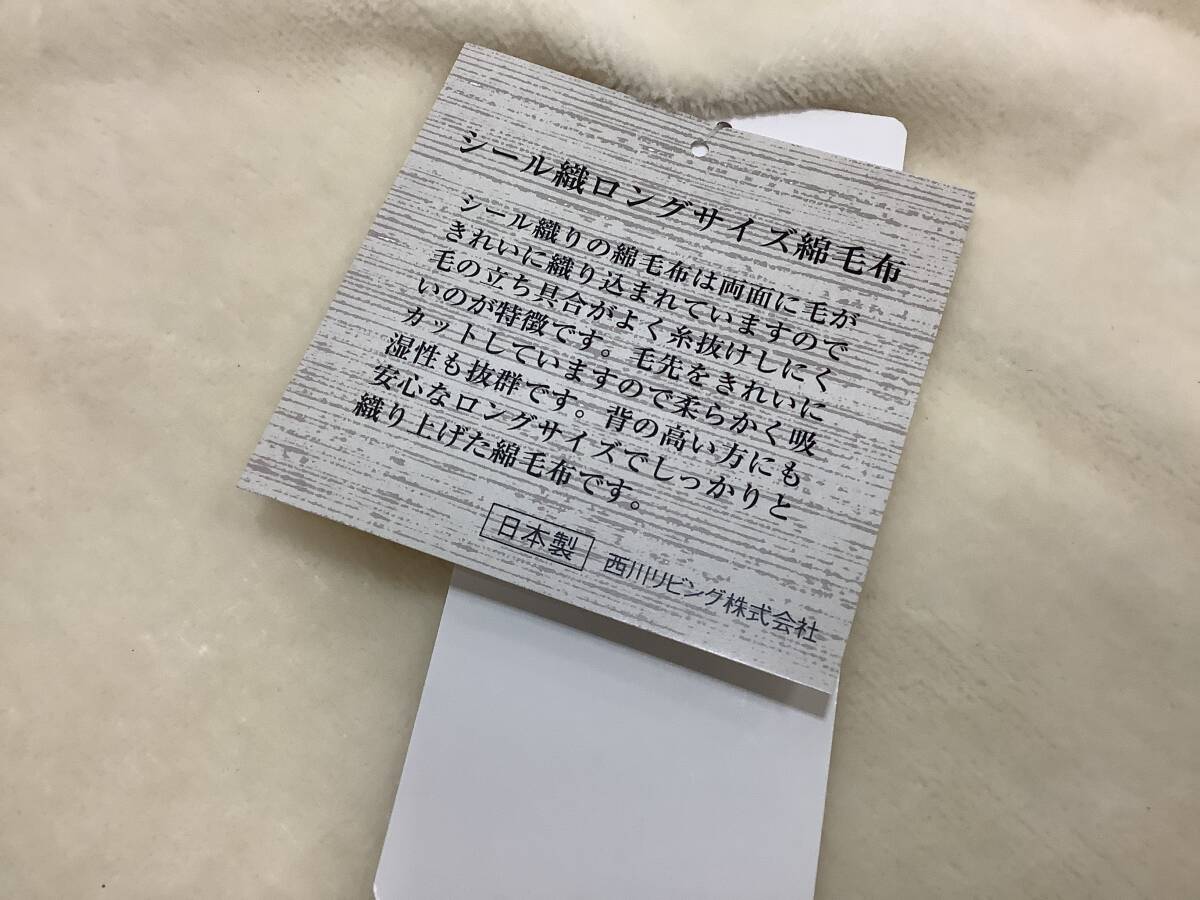 シール織ロングサイズ綿毛布
シール織りの綿毛布は両面に毛が
きれいに織り込まれていますので
毛の立ち具合がよく糸抜けしにく
いのが特徴です。毛先をきれいに
カットしていますので柔らかく吸
湿性も抜群です。背の高い方にも
安心なロングサイズでしっかりと
織り上げた綿毛布です。
日本製 西川リビング株式会社